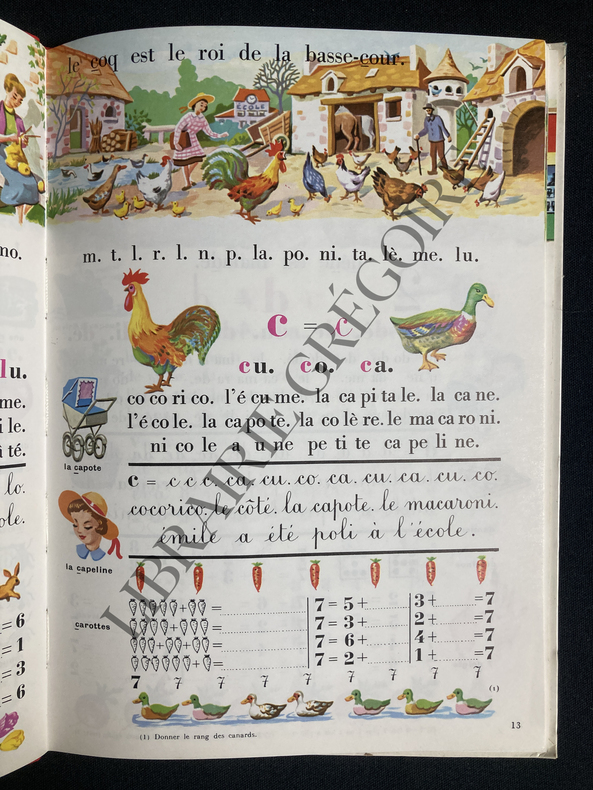 le coq est le roi de la basse-cour.
ÉCOLE
no.
m. t. l. r. l. n. p. la. po. ni. ta. lè. me. lu.
c = c
cu. co. ca.
lu.
me.
ile.
ité.
co co ri co. l'é cu me. la ca pi ta le. la ca ne.
l'é co le. la ca po te. la co lè re. le ma ca ro ni.
ni co le a u ne pe ti te ca pe li ne.
la capote
c = c c c. ca. cu. co. ca. cu. ca. cu. co.
cocorico. le côté. la capote. le macaroni.
émile a été poli à l'école.
lo.
ole.
la capeline
carottes
+ = 7 = 5 + 3 + = 7
+ = 7 = 3 + 2 + = 7
+ + = 7 = 6 + 4 + = 7
+ = 7 = 2 + 1 + = 7
= 6
= 1
= 3
= 6
7 7 7 7 7 7 7 7 7
(1)
(1) Donner le rang des canards.
13
LIBRAIRIE GRÉGOIRE